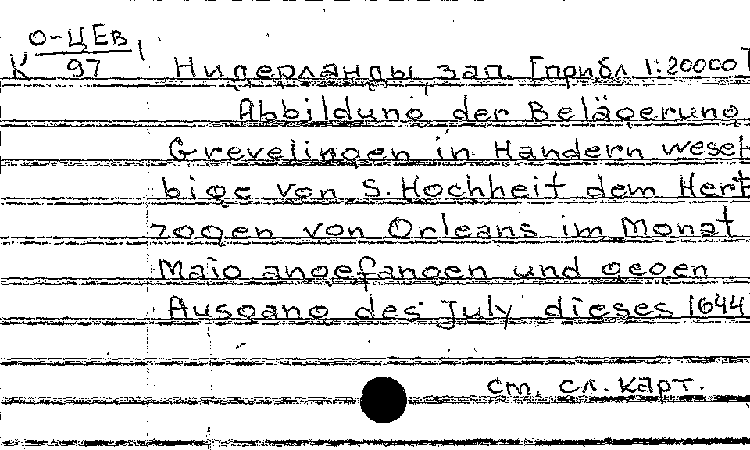 К О-ЦЕв/97 1
Нидерланды зап. [прибл 1:20000]
Abbildung der Belägerung
Grevelingen in Handern wesel-
bige von S. Hochheit dem Hert
zogen von Orleans im Monat
Maio angefangen und gegen
Ausgang des July dieses 1644
ст. сл. карт.